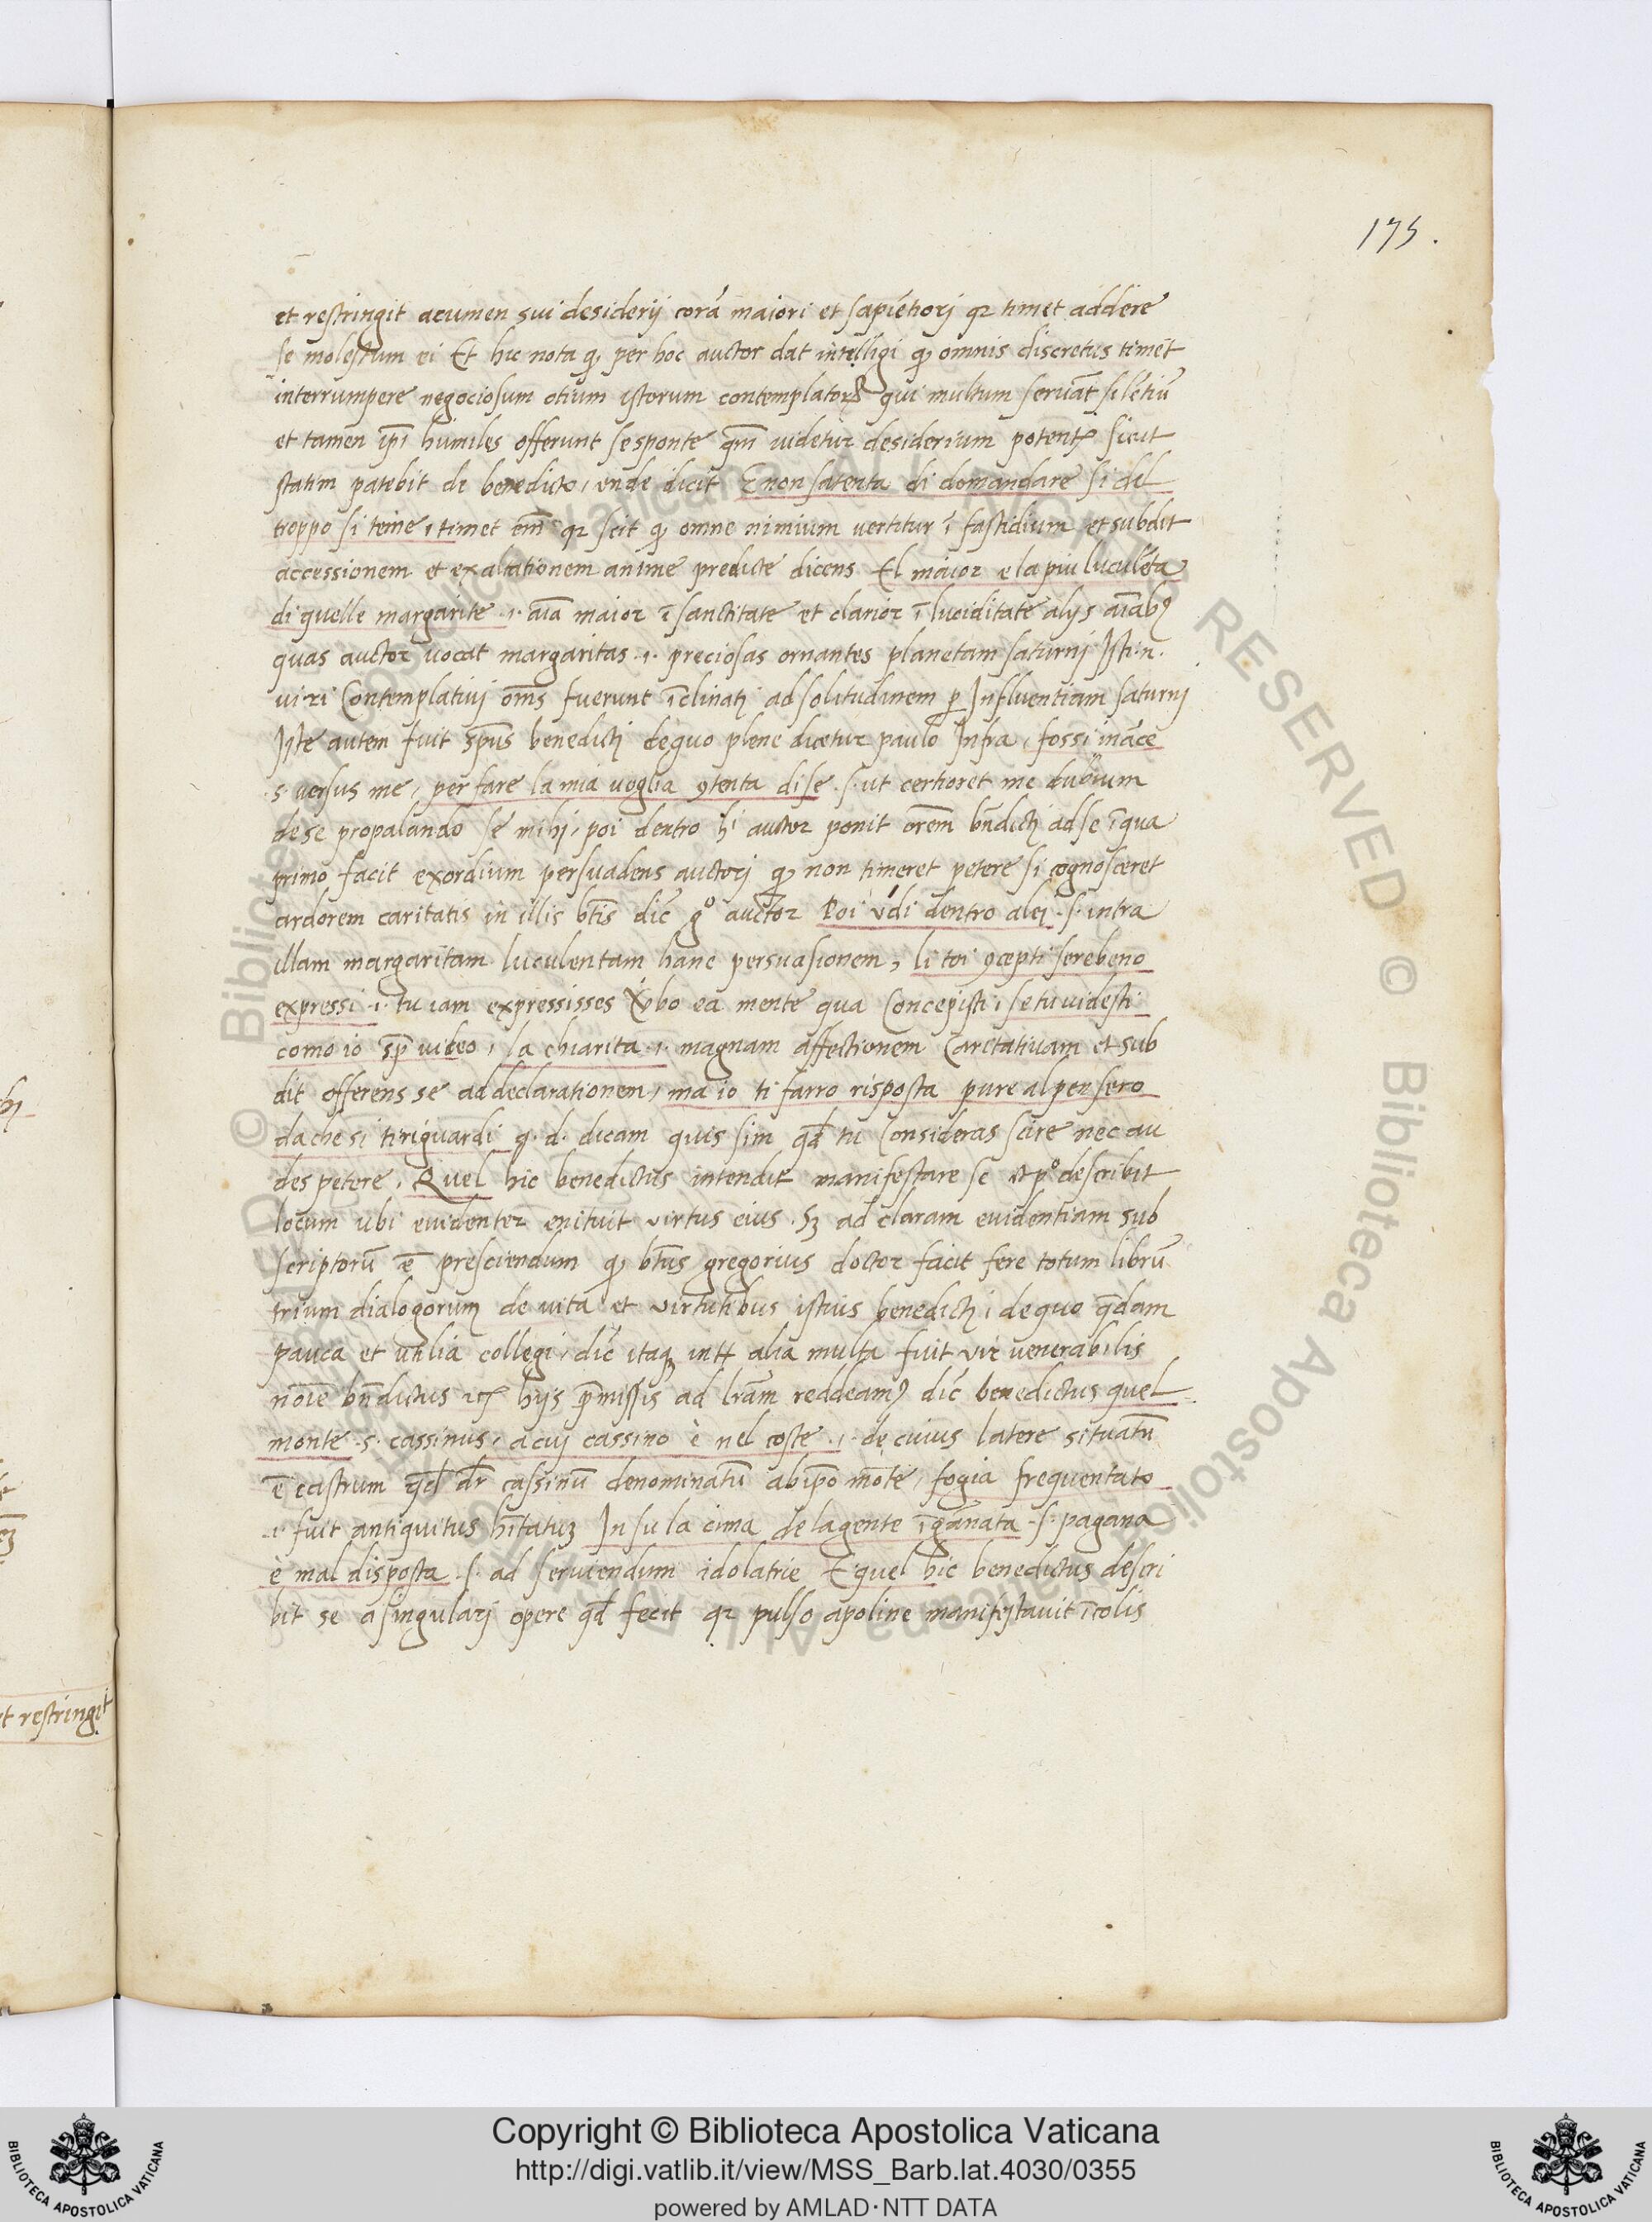 175.
et restringit acumen sui desiderij corā maiori et sapiētiorj qꝛ timet addere
se molestum ei Et hic nota ꝙ per hoc auctor dat intelligi ꝙ omnis discretus timet
interrumpere negociosum otium istorum contemplatorꝝ qui multum seruāt silētiū
et tamen ip̄i humiles offerunt se sponte qm̄ uidetur desiderium potentꝭ sicut
statim patebit de benedicto, unde dicit E non satenta di domandare si del
troppo si teme, timet em̄ qꝛ scit ꝙ omne nimium vertitur ī fastidium et subdit
accessionem et exaltationem anime predicte dicens El maior e la piu luculēta
di quelle margarite .i. aīa maior ī sanctitate et clarior ī luciditate alijs aīabꝯ
quas auctor uocat margaritas .i. preciosas ornantes planetam saturnj Isti .n.
viri Contemplatiuj om̄s fuerunt īclinatj ad solitudinem ꝑ Influentiam saturnj
Iste autem fuit sp̄us benedictj de quo plene dicetur paulo Infra, fossi ināce
.s. versus me, per fare la mia uoglia ꝯtenta di se .s. ut certioret me dubium
de se propalando se mihj, poi dentro hⁱ auctor ponit orem̄ bn̄dictj ad se ī qua
primo facit exordium persuadens auctorj ꝙ non timeret petere si cognosceret
ardorem caritatis in illis bt̄is dic̄ gº auctor Poi vdi dentro alej .s. intra
illam margaritam luculentam hanc persuasionem, li toi ꝯcepti serebeno
expressi .i. tu iam expressisses v̄bo ea mente qua Concepisti, se tu uidesti
como io sp̄ uideo, la chiarita .i. magnam affectionem Caritatiuam et sub
dit offerens se ad declarationem, ma io ti farro risposta pure al pensero
da che si ti riguardi q. d. dicam quis sim qd̄ tu Consideras scire nec au
des petere. Quel hic benedictus intendit manifestare se et pº describit
locum ubi euidenter enituit virtus eius. Sꝫ ad claram euidentiam sub
scriptorū ē presciendum ꝙ bt̄us gregorius doctor facit fere totum librū
trium dialogorum de uita et virtutibus istius benedictj, de quo qdam
pauca et utilia collegi, dic̄ itaqꝫ int̄ alia multa fuit vir uenerabilis
noīe bn̄dictus hijs p̄missis ad lr̄am reddeamꝯ dic̄ benedictus quel
monte .s. cassinus, a cuj cassino è nel coste .i. de cuius latere situatū
ē castrum qd̄ dr̄ cassinū denominatū ab ip̄o mōte, fogia frequentato
.i. fuit antiquitus hītatuꝫ In su la cima de la gente īgānata .s. pagana
è mal disposta .s. ad seruiendum idolatrie E quel hic benedictus descri
bit se a singularj opere qd̄ fecit qꝛ pulso apoline manifestauit īcolis
et restringit
Copyright © Biblioteca Apostolica Vaticana
http://digi.vatlib.it/view/MSS_Barb.lat.4030/0355
powered by AMLAD·NTT DATA